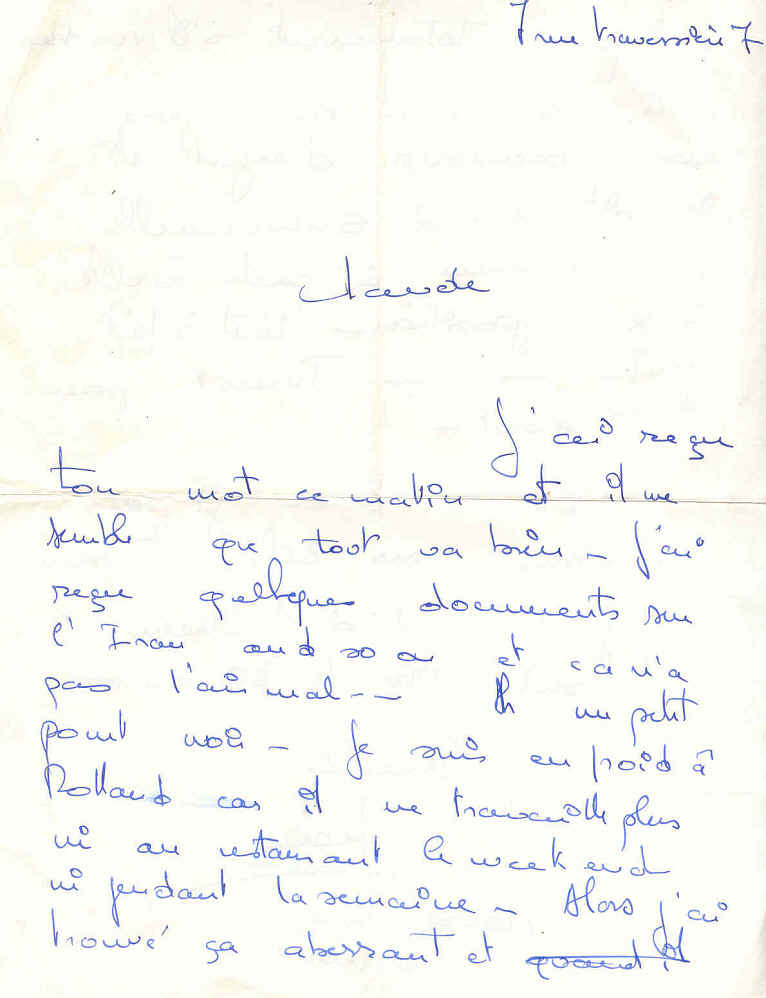 7 rue traversière 7
Claude
J'ai reçu
ton mot ce matin et il me
semble que tout va bien - J'ai
reçu quelques documents sur
l'Iran and so on et ca n'a
pas l'air mal -- un petit
point noir - Je suis en froid à
Rolland car il ne travaille plus
ni au restaurant le week end
ni pendant la semaine - Alors j'ai
trouvé ça aberrant et quand il